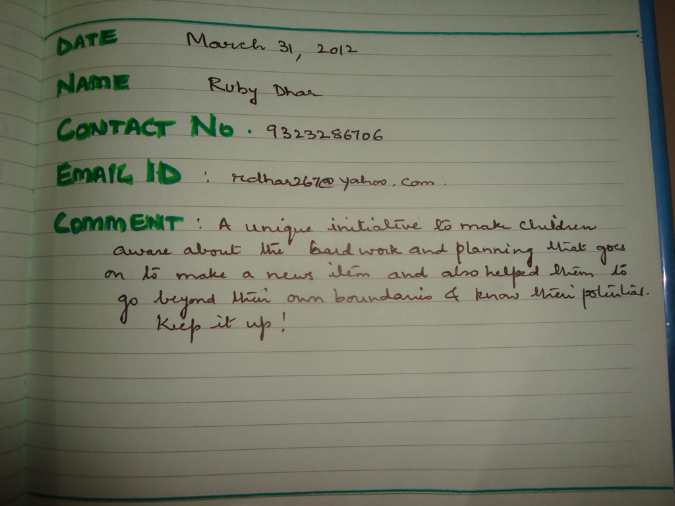 DATE March 31, 2012
NAME Ruby Dhar
CONTACT No. 9323286706
EMAIL ID : rcdhar267@yahoo.com
COMMENT : A unique initiative to make children
aware about the hard work and planning that goes
on to make a news item and also helped them to
go beyond their own boundaries & know their potential.
Keep it up!